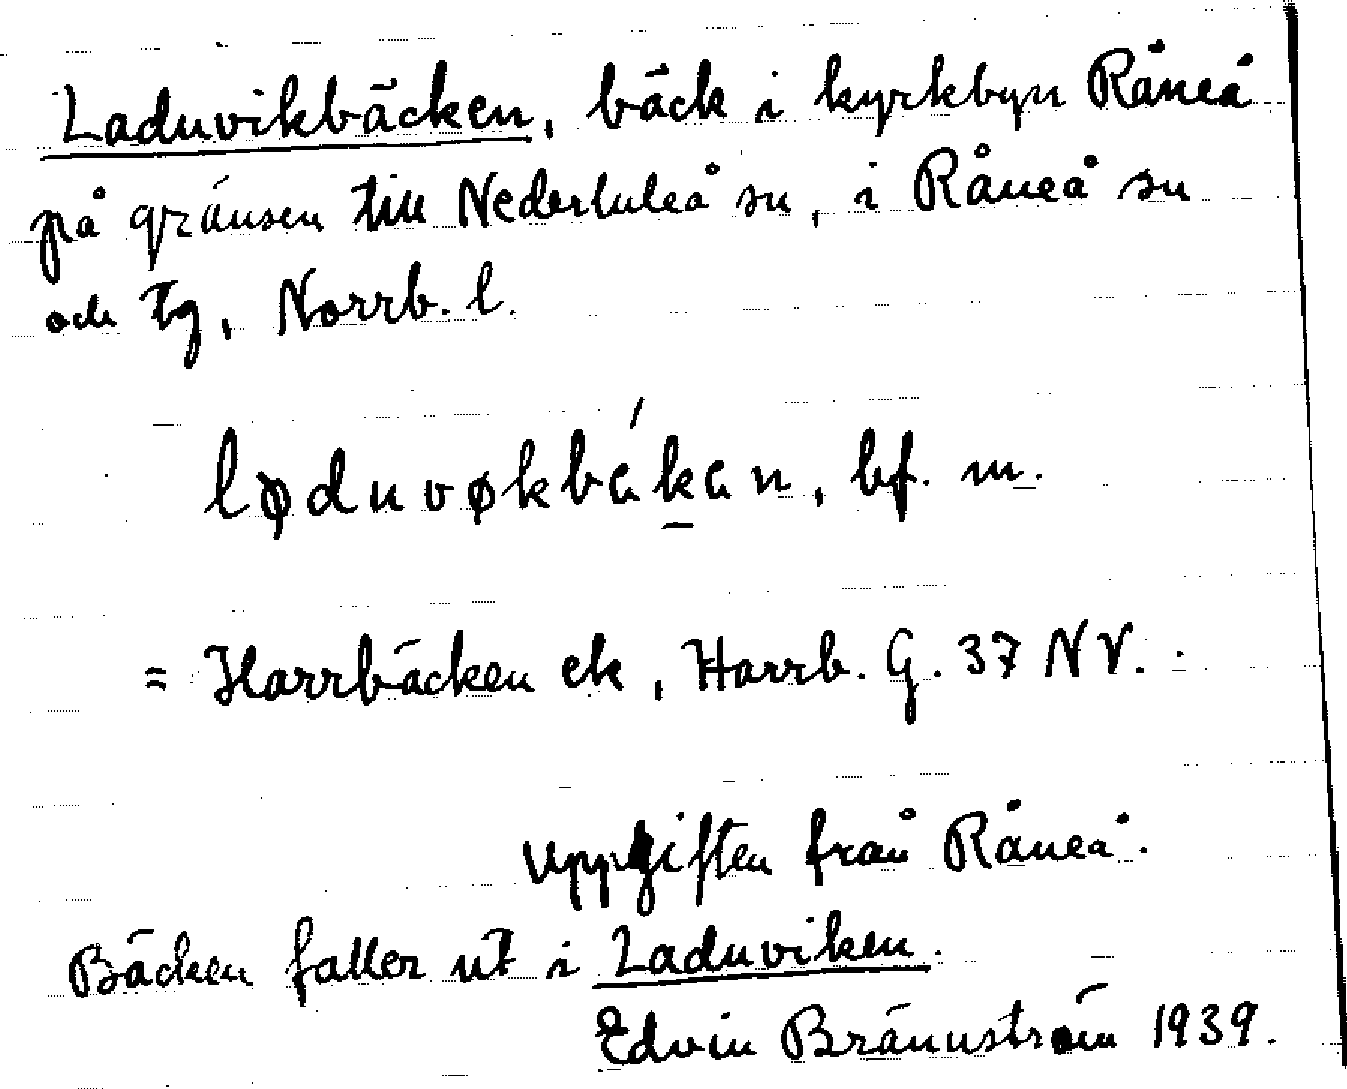 Laduvikbäcken, bäck i kyrkbyn Råneå
på gränsen till Nederluleå sn, i Råneå sn
och tg, Norrb. l.
løduvøkbákan, bf. m.
= Harrbäcken ek, Harrb. G. 37 NV.
Uppgiften från Råneå.
Bäcken faller ut i Laduviken.
Edvin Brännström 1939.